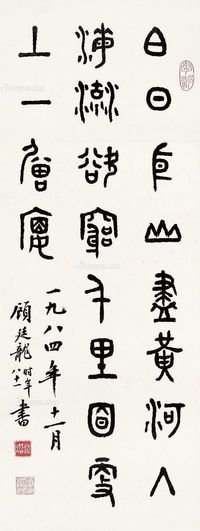 白日依山盡黃河入
海流欲窮千里目更
上一層樓
一九八四年十一月
顧廷龍时年八十一書